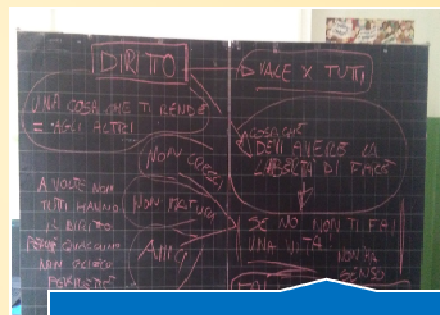 DIRITO
VALE X TUTTI
UNA COSA CHE TI RENDE
= AGLI ALTRI
COSA CHE
DEVI AVERE LA
LIBERTÀ DI FARE
NON
NON MATURA
AMICI
A VOLTE NON
TUTTI HANNO
IL DIRITTO
PERCHÉ QUALCUNO
NON
SE NO NON TI FAI
UNA VITA
NON HA
SENSO